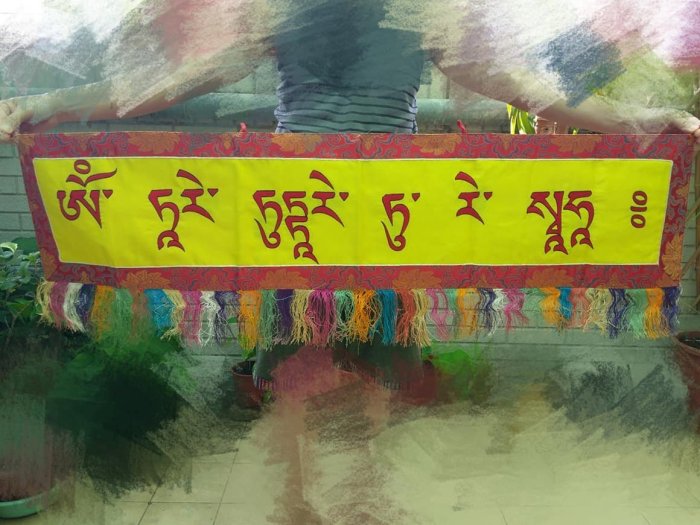 ཨོཾ་ ཏཱརེ་ ཏུཏྟཱརེ་ ཏུ་ རེ་ སྭཱཧཱ ༔